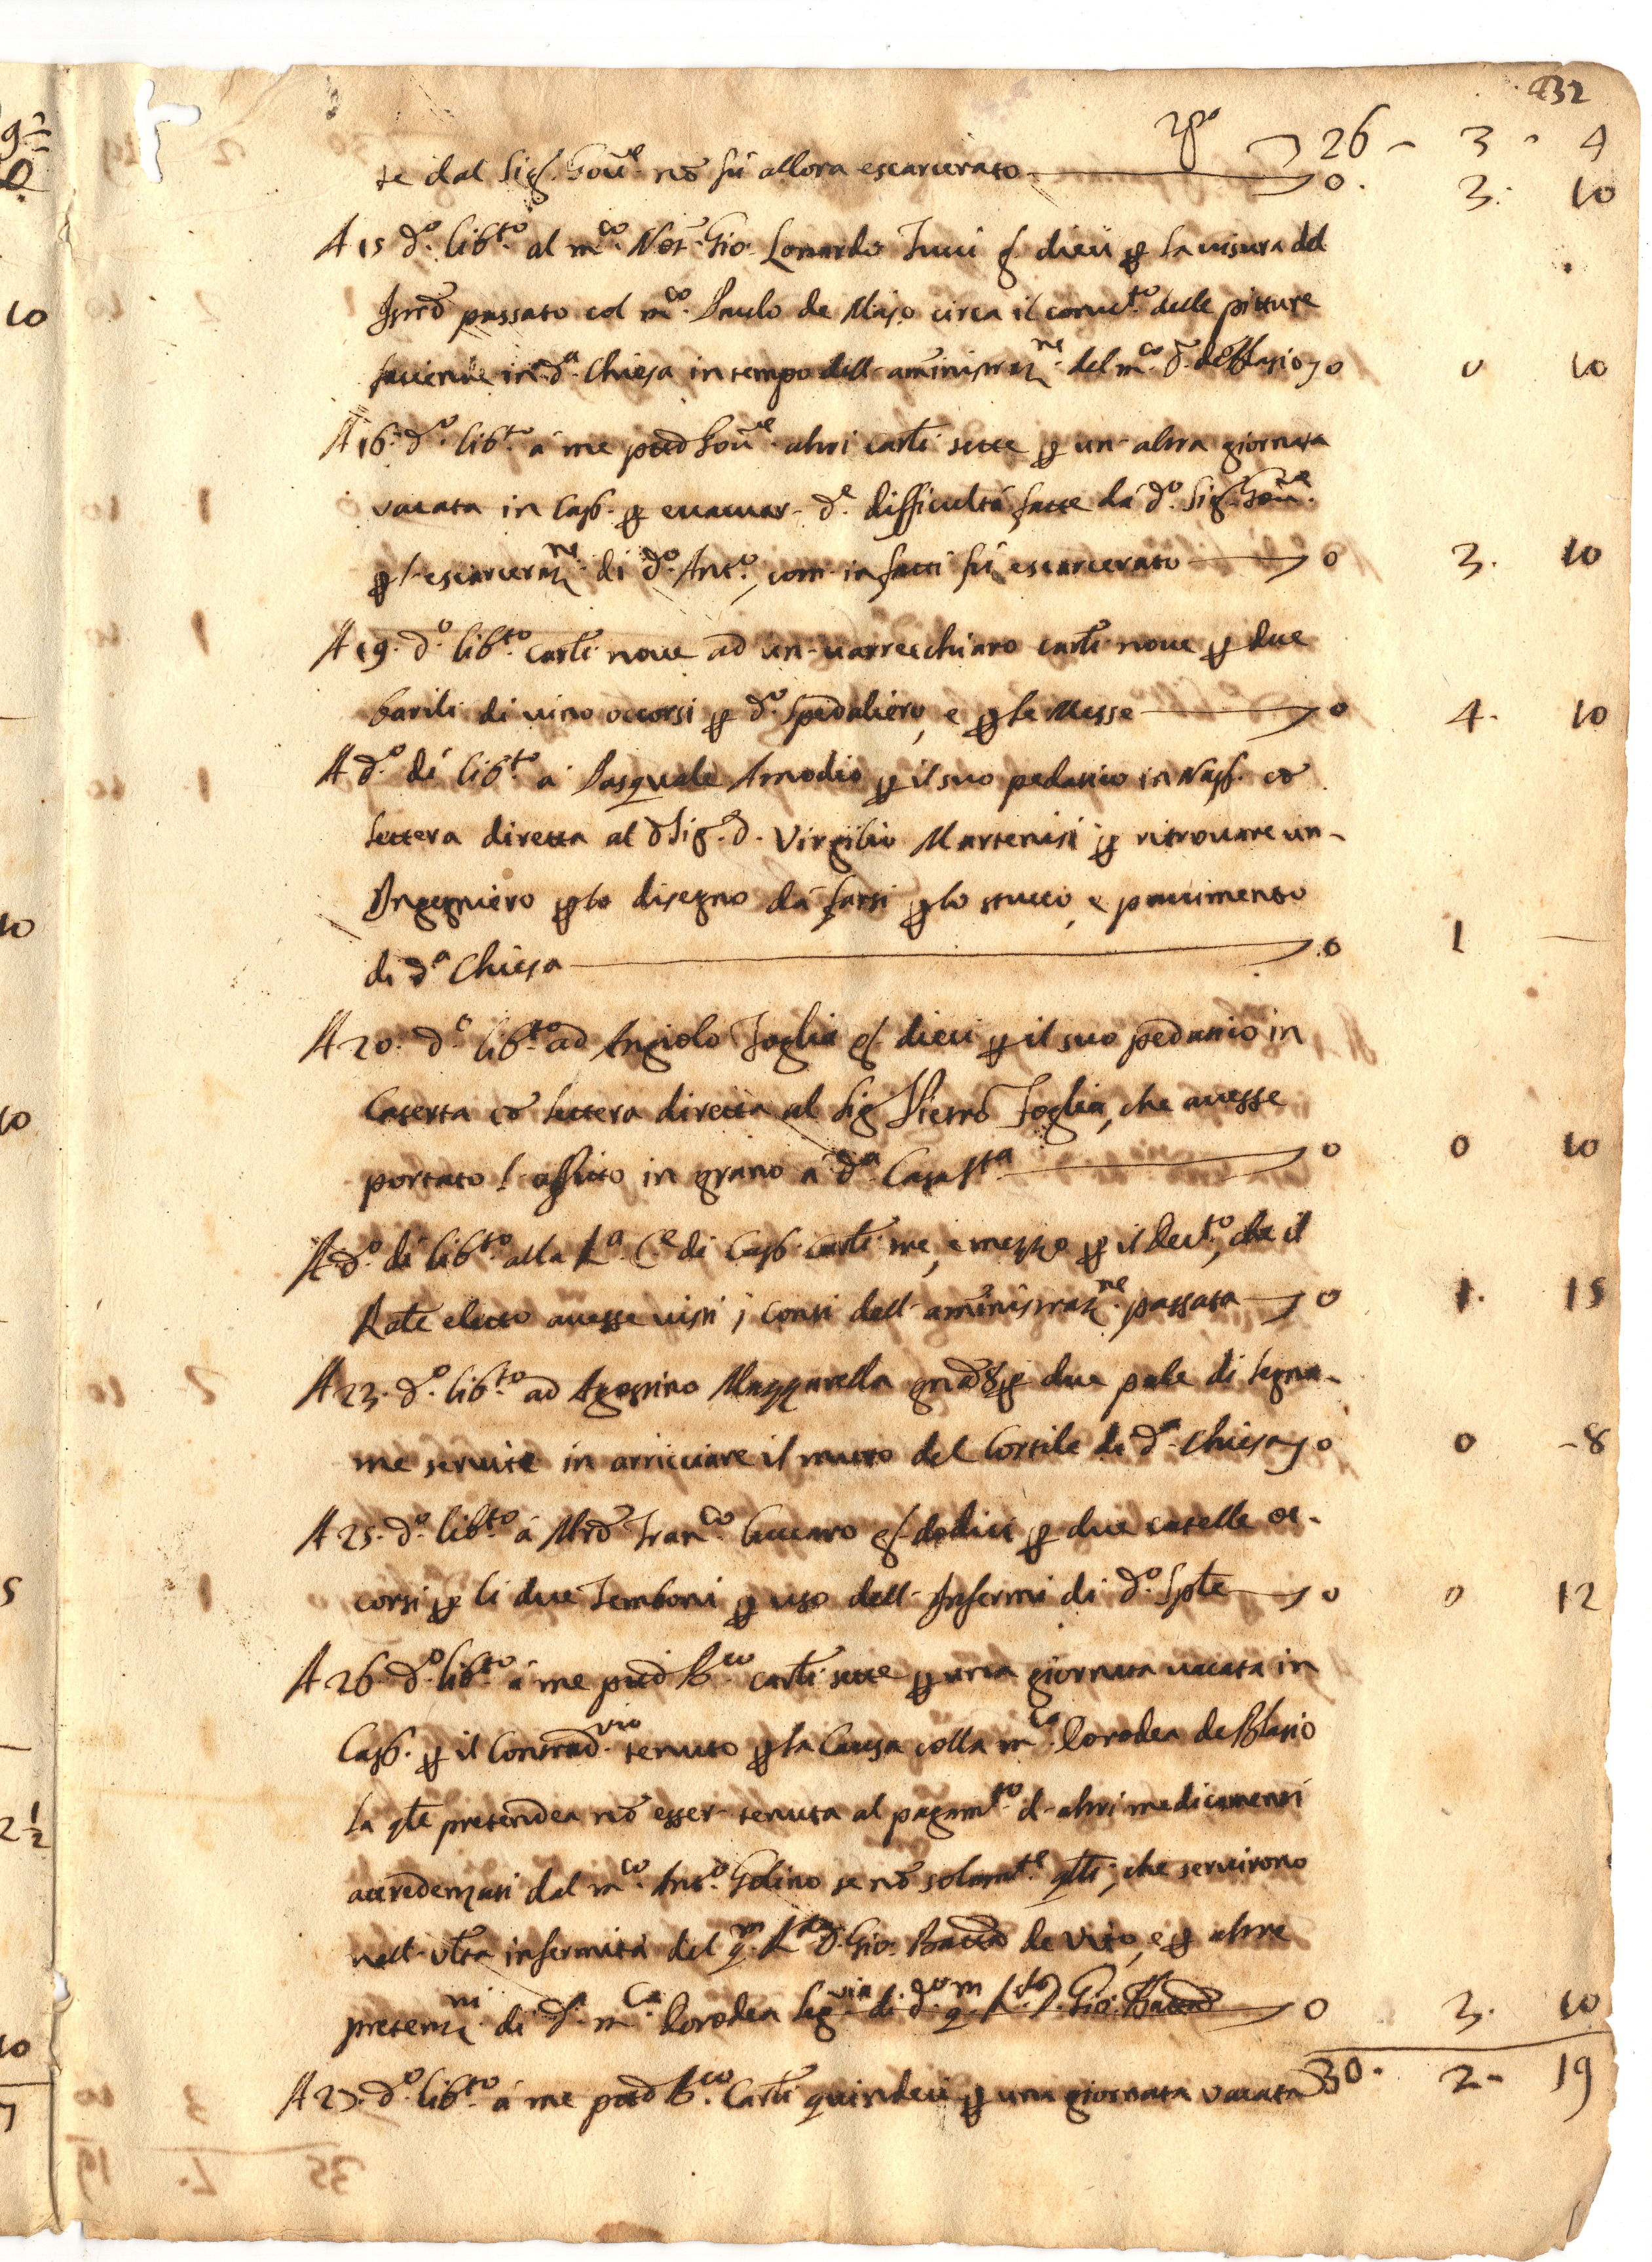 132
Rpo 26 - 3 - 4
te dal Sig.r Gou.e nō fù allora escarcerato 0. 3. 10
A 15 d.o lib.to al m.co Not. Gio: Lonardo Iuui g.a dieci p la uisura del
Istrō passato col m.co Paulo de Majo circa il conuet.o delle pitture
faciende in d.a Chiesa in tempo dell-aministraz.ne del m.co d. deBlasio 0 0 10
A 16. d.o lib.to á me ptto Gou.e altri carli sette p un-altra giornata
vacata in Capp. p euacuar- d.e difficultá fatte dá d.o Sig.r Gou.e
p l-escarceraz.ne di d.o Ant.o, com-in fatti fú escarcerato 0 3. 10
A 19. d.o lib.to carli noue ad un-uarrecchiaro carli noue p due
barili di uino occorsi p d.o Spedaliero, e p le Messe 0 4. 10
A d.o dí lib.to a Pasquale Amodio p il suo pedatico in Nap. cō
lettera diretta al d Sig.r d. Virgilio Martenisi p ritrouare un-
Ingegniero p lo disegno dá farsi p lo stucco, e pauimento
di d.a Chiesa 0 1 —
A 20. d.o lib.to ad Angiolo Foglia g.a dieci p il suo pedatico in
Caserta cō lettera diretta al Sig.r Pietro Foglia, che auesse
portato l-affitto in grano á d.a Casa S.ta 0 0 10
A d.o dí lib.to alla R.a C.e di Capp. carli tre, e mezzo p il Decr.to, che il
Rate eletto auesse uisti i conti dell-aministraz.ne passata 0 1. 15
A 23. d.o lib.to ad Agostino Mazzarella g.a 8 p due pale di legna-
me seruite in arricciare il muro del Cortile di d.a Chiesa 0 0 -8
A 25. d.o lib.to á Mrō Fran.co Cuccaro g.a dodici p due catelle oc-
corsi p li due Temboni p uso dell-Infermi di d.o Spte 0 0 12
A 26. d.o lib.to á me ptto R.co carli sette p una giornata uacata in
Capp. p il Contrad.vio tenuto p la Causa colla m.ca Dorodea deBlasio
la qte pretendea nō esser-tenuta al pagam.to d-altri medicamenti
accredenzati dal m.co Ant.o Golino se nō solam.te qlli, che seruirono
nell-vlta infermità del q.m R.do D. Gio: Batta de Vito, e p altre
pretenz.ni di d.a m.ca Dorodea leg.ria di d.o q.m R.do D. Gio: Batta 0 3. 10
A 27. d.o lib.to á me ptto R.co Carli quindeci p una giornata vacata 30. 2- 19